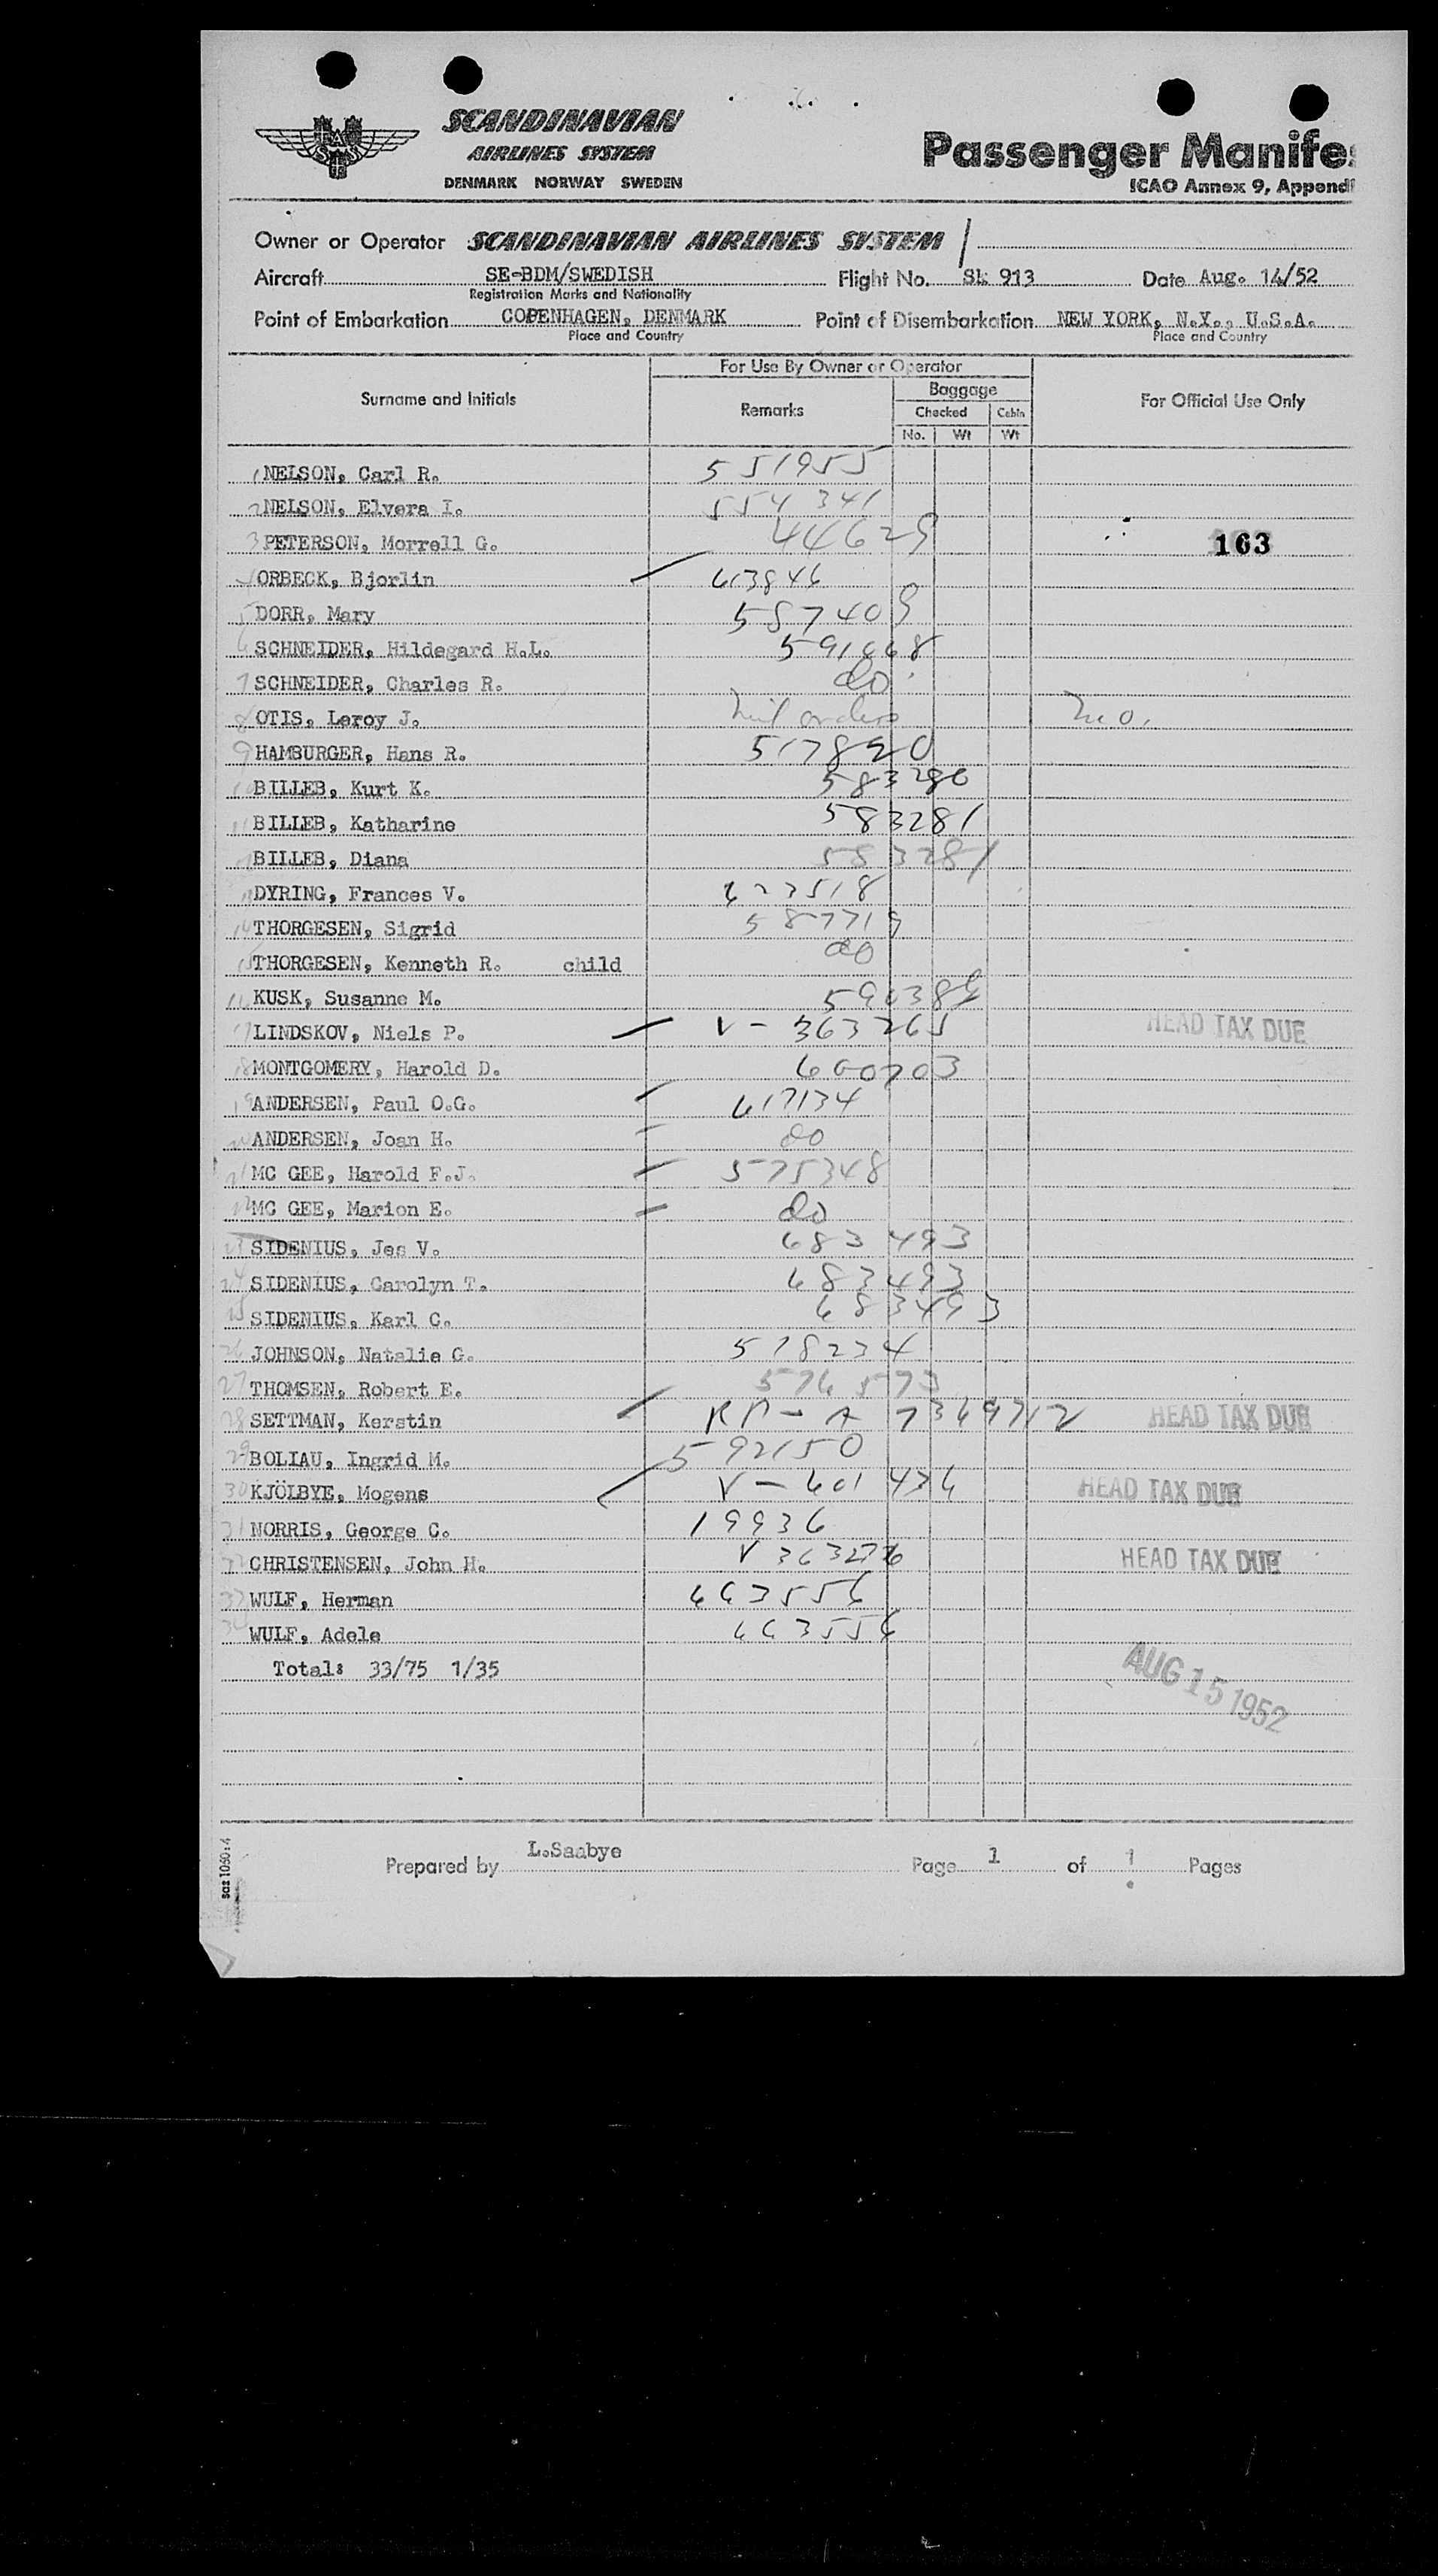 SCANDINAVIAN
AIRLINES SYSTEM
DENMARK NORWAY SWEDEN
Passenger Manifes
ICAO Annex 9, Appendi
Owner or Operator SCANDINAVIAN AIRLINES SYSTEM /
Aircraft SE-BDM/SWEDISH Flight No. SK 913 Date Aug. 14/52
Registration Marks and Nationality
Point of Embarkation COPENHAGEN, DENMARK Point of Disembarkation NEW YORK, N.Y., U.S.A.
Place and Country Place and Country
For Use By Owner or Operator
Surname and Initials Remarks Baggage For Official Use Only
Checked Cabin
No. Wt Wt
1 NELSON, Carl R. 551955
2 NELSON, Elvera I. 554341
3 PETERSON, Morrell G. 44629 163
4 ORBECK, Bjorlin 613846
5 DORR, Mary 587409
6 SCHNEIDER, Hildegard H.L. 591668
7 SCHNEIDER, Charles R. do
8 OTIS, Leroy J. Mil orders M.O.
9 HAMBURGER, Hans R. 517820
10 BILLEB, Kurt K. 583280
11 BILLEB, Katharine 583281
12 BILLEB, Diana 583281
13 DYRING, Frances V. 623518
14 THORGESEN, Sigrid 587719
15 THORGESEN, Kenneth R. child do
16 KUSK, Susanne M.
17 LINDSKOV, Niels P. V-363265 HEAD TAX DUE
18 MONTGOMERY, Harold D. 600703
19 ANDERSEN, Paul O.G. 617134
20 ANDERSEN, Joan H. do
21 MC GEE, Harold F.J. 575348
22 MC GEE, Marion E. do
23 SIDENIUS, Jes V. 683493
24 SIDENIUS, Carolyn T. 683493
25 SIDENIUS, Karl C. 683493
26 JOHNSON, Natalie G. 578234
27 THOMSEN, Robert E. 576573
28 SETTMAN, Kerstin RP-A 7369712 HEAD TAX DUE
29 BOLIAU, Ingrid M. 592150
30 KJÖLBYE, Mogens V-601436 HEAD TAX DUE
31 NORRIS, George C. 19936
32 CHRISTENSEN, John H. V 363276 HEAD TAX DUE
33 WULF, Herman 663556
34 WULF, Adele 663556
Total: 33/75 1/35
AUG 15 1952
Prepared by L.Saabye Page 1 of 1 Pages
saz 1060:4